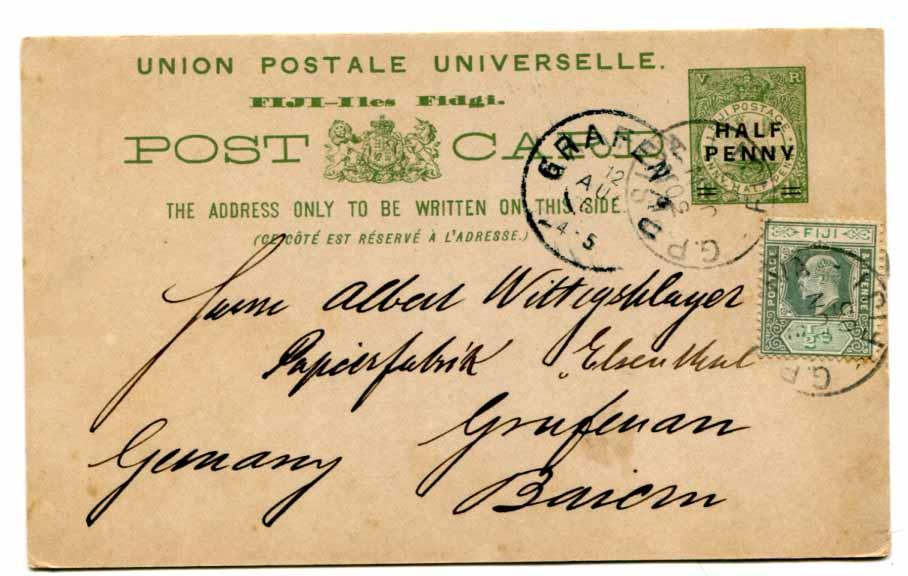 UNION POSTALE UNIVERSELLE.
FIJI-Iles Fidgi.
POST CARD
THE ADDRESS ONLY TO BE WRITTEN ON THIS SIDE
(CE CÔTÉ EST RÉSERVÉ À L'ADRESSE.)
V R
FIJI POSTAGE
HALF
PENNY
GRAFENAU
12
AU
4-5
G.P.O
FIJI
POSTAGE
REVENUE
½d
G.P
Herrn Albert Wittigschlager
Papierfabrik "Elsenthal
Grafenau
Germany Baiern